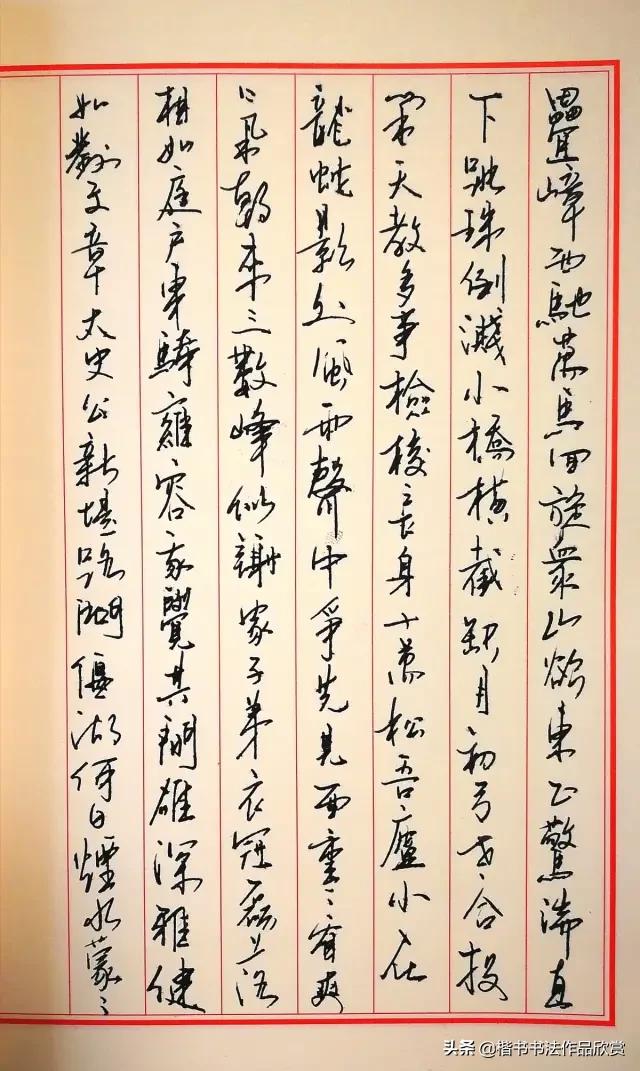 疊嶂西馳萬馬回旋眾山欲東正驚湍直
下跳珠倒濺小橋橫截缺月初弓老合投
閒天教多事檢校長身十萬松吾廬小在
龍蛇影外風雨聲中爭先見面重〻看爽
氣朝來三數峰似謝家子弟衣冠磊落
相如庭户車騎雍容我覺其間雄深雅健
如對文章太史公新堤路問偃湖何日煙水蒙〻
头条 @楷书书法作品欣赏